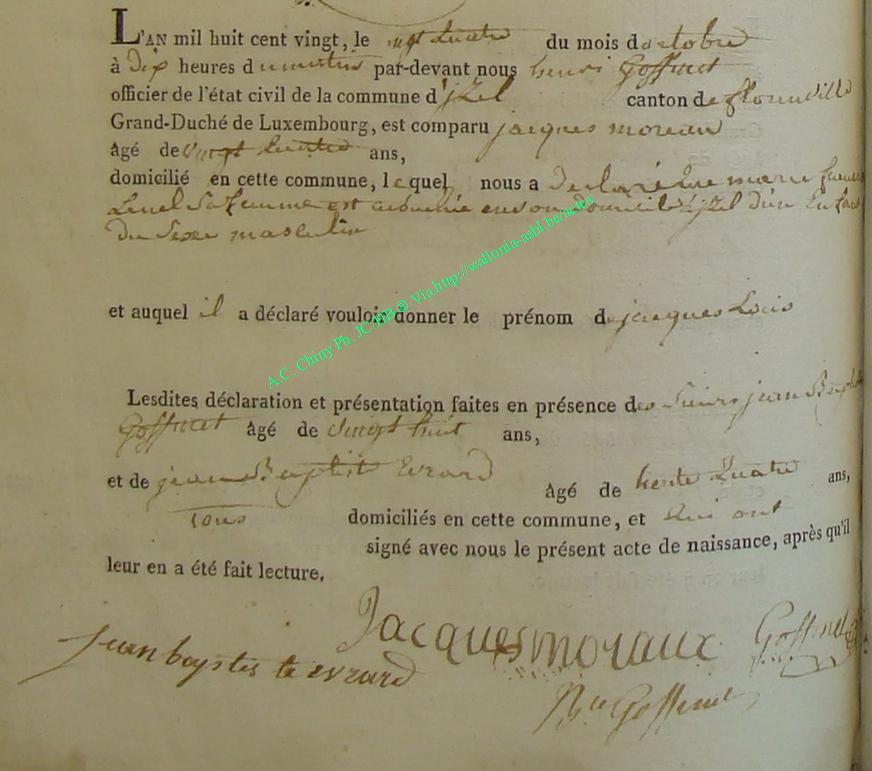 L'AN mil huit cent vingt, le vingt quatre du mois d'octobre
à dix heures du matin par-devant nous henri Goffinet
officier de l'état civil de la commune d'jzel canton de florenville
Grand-Duché de Luxembourg, est comparu jacques moreau
âgé de vingt quatre ans,
domicilié en cette commune, lequel nous a declaré que marie
sa femme est acouchée en son domicile a jzel d'un Enfant
du sexe masculin
et auquel il a déclaré vouloir donner le prénom de jacques Louis
Lesdites déclaration et présentation faites en présence des sieurs jean Baptiste
Goffinet âgé de vingt huit ans,
et de jean Baptist Evrard âgé de trente quatre ans,
Tous domiciliés en cette commune, et qui ont
signé avec nous le présent acte de naissance, après qu'il
leur en a été fait lecture.
Jacques moraux Goffinet
jean baptiste evrard
Bte Goffinet
A.C. Chiny Ph. JC/HB® Via http://wallonia-asbl.be/actes